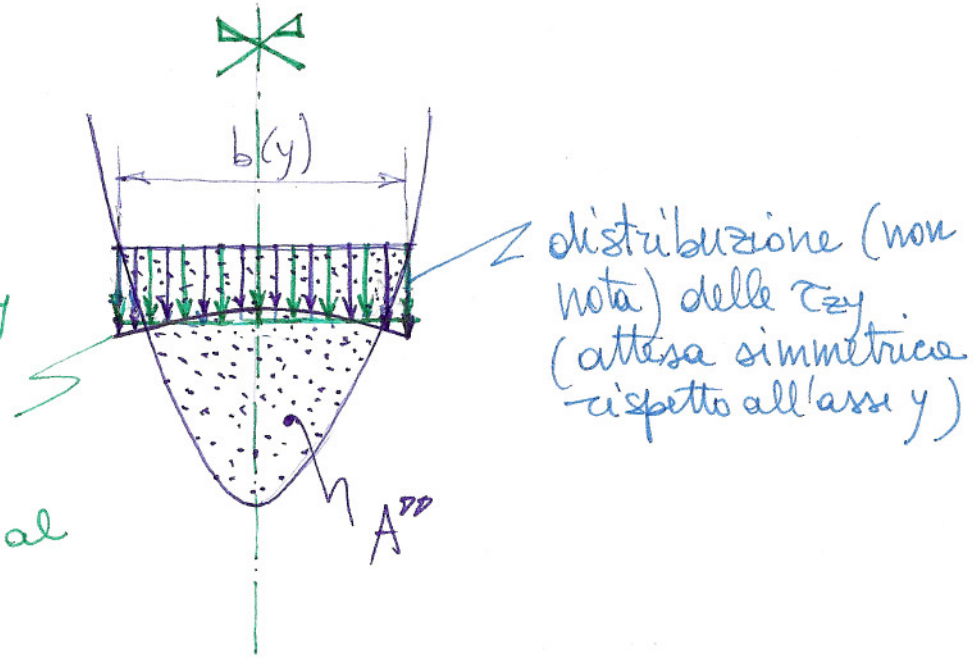 b(y)
distribuzione (non
nota) delle τzy
(attesa simmetrica
rispetto all'asse y)
y
A**
al